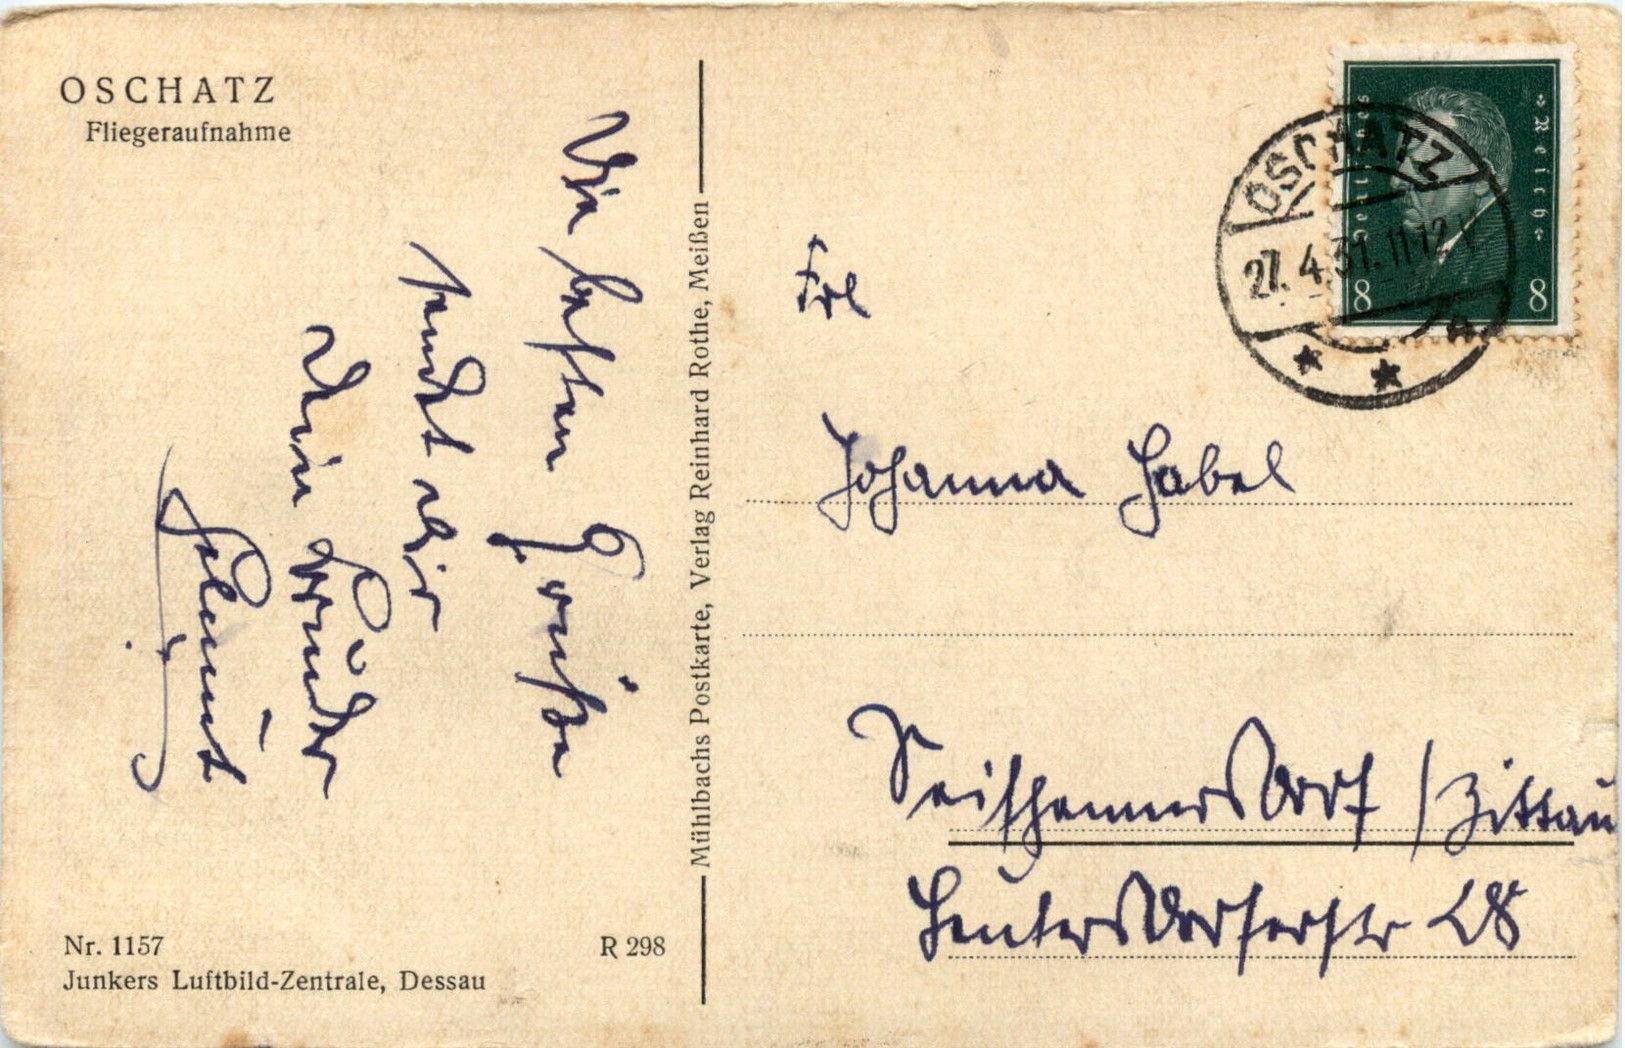 OSCHATZ
Fliegeraufnahme
Die besten Grüße
sendet dir
dein Bruder
Helmut
Nr. 1157
R 298
Junkers Luftbild-Zentrale, Dessau
Mühlbachs Postkarte, Verlag Reinhard Rothe, Meißen
Deutsches Reich
8 8
OSCHATZ
27.4.31.11-12 V
a
Frl
Johanna Habel
Seifhennersdorf / Zittau
Leutersdorferstr 28